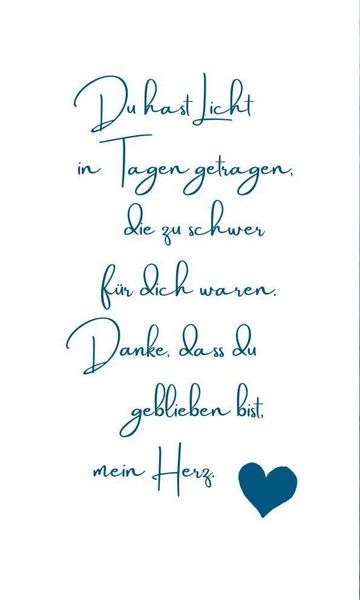 Du hast Licht
in Tagen getragen,
die zu schwer
für dich waren.
Danke, dass du
geblieben bist,
mein Herz.